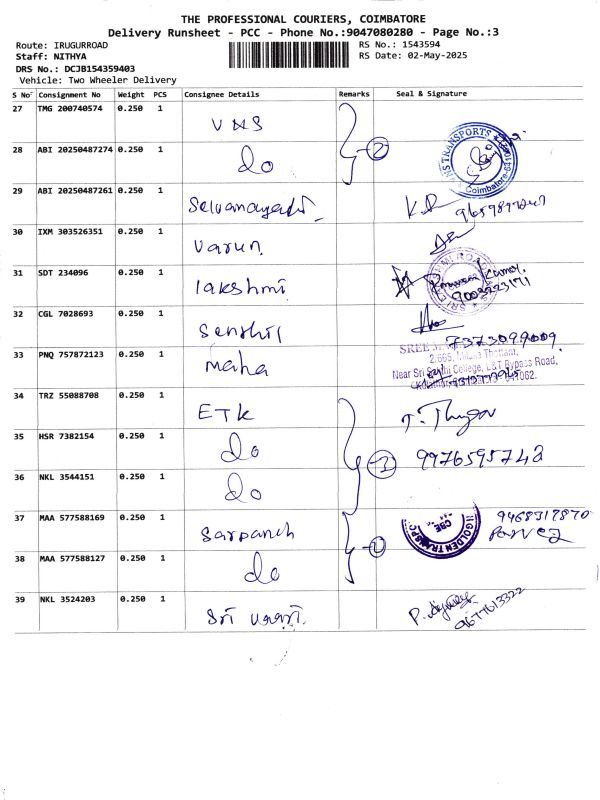 THE PROFESSIONAL COURIERS, COIMBATORE
Delivery Runsheet - PCC - Phone No.:9047080280 - Page No.:3
Route: IRUGURROAD
RS No.: 1543594
Staff: NITHYA
RS Date: 02-May-2025
DRS No.: DCJB154359403
Vehicle: Two Wheeler Delivery
S No Consignment No Weight PCS Consignee Details Remarks Seal & Signature
27 TMG 200740574 0.250 1 VNS
28 ABI 20250487274 0.250 1 do 2
TRANSPORTS
Coimbatore
29 ABI 20250487261 0.250 1
30 IXM 303526351 0.250 1 Varun
31 SDT 234096 0.250 1 lakshmi
32 CGL 7028693 0.250 1 Senthil
7373099009
33 PNQ 757872123 0.250 1 maha
SREE
Near Sri College, L&T Bypass Road,
34 TRZ 55088708 0.250 1 ETK
35 HSR 7382154 0.250 1 do 3 9976595742
36 NKL 3544151 0.250 1 do
37 MAA 577588169 0.250 1 Sarpanch
GOLDEN
CBE
38 MAA 577588127 0.250 1 do
39 NKL 3524203 0.250 1 Sri
9677613322